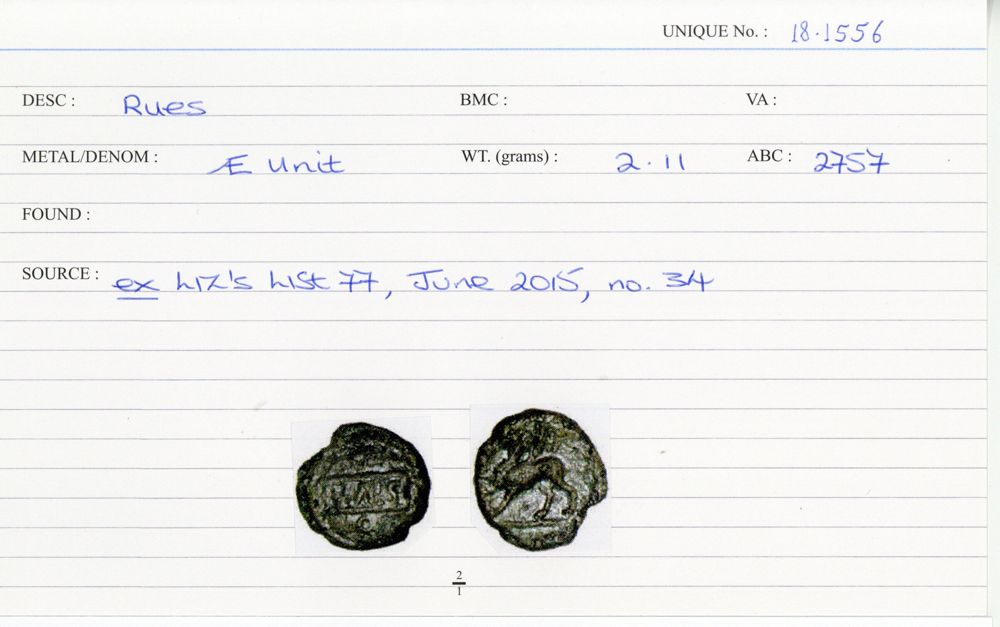 UNIQUE No. : 18.1556
DESC : Rues BMC : VA :
METAL/DENOM : Æ Unit WT. (grams) : 2.11 ABC : 2757
FOUND :
SOURCE : ex Liz's List 77, June 2015, no. 34
2
1